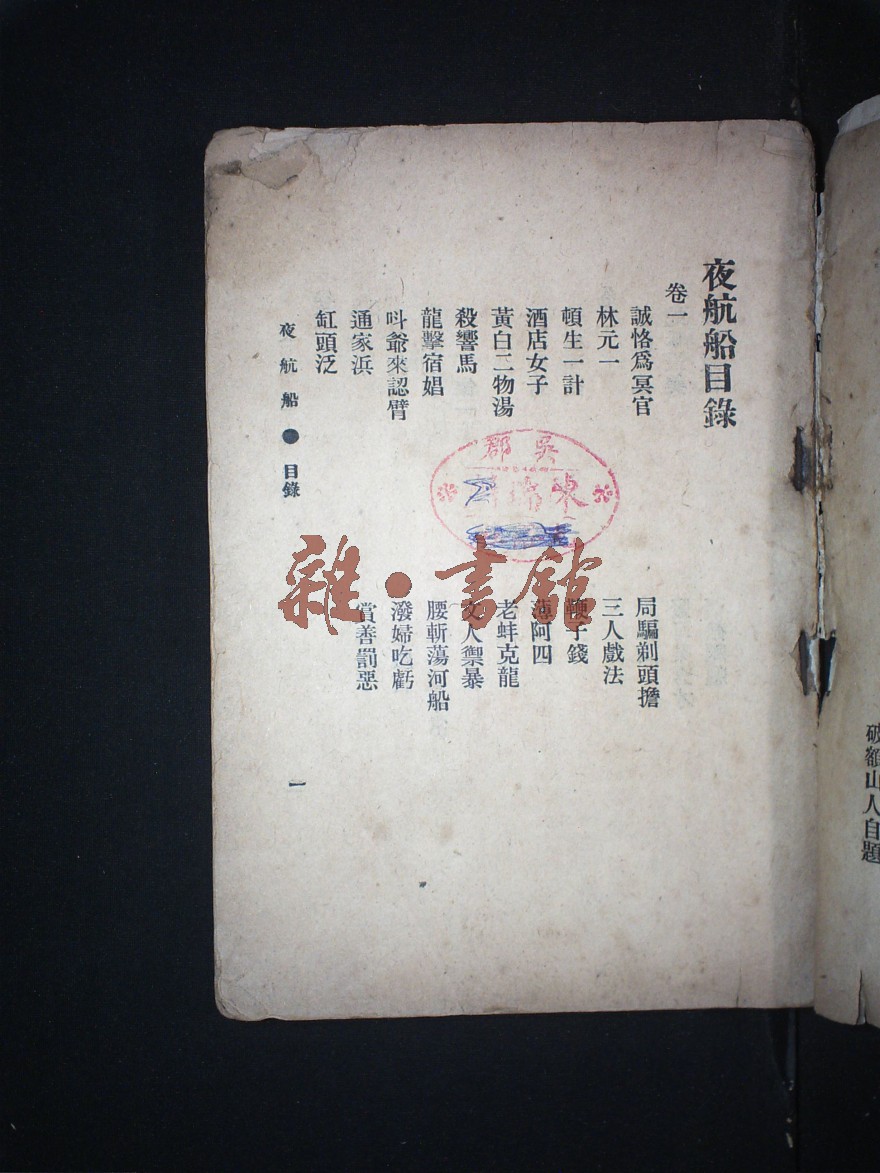 夜航船目錄
卷一
誠恪爲冥官
林元一
頓生一計
酒店女子
黃白二物湯
殺響馬
龍擊宿娼
呌爺來認臂
通家浜
缸頭泛
局騙剃頭擔
三人戲法
鞭子錢
薄阿四
老蚌克龍
文人禦暴
腰斬蕩河船
潑婦吃虧
賞善罰惡
夜航船●目錄
一
吳郡
雜·書館
破額山人自題